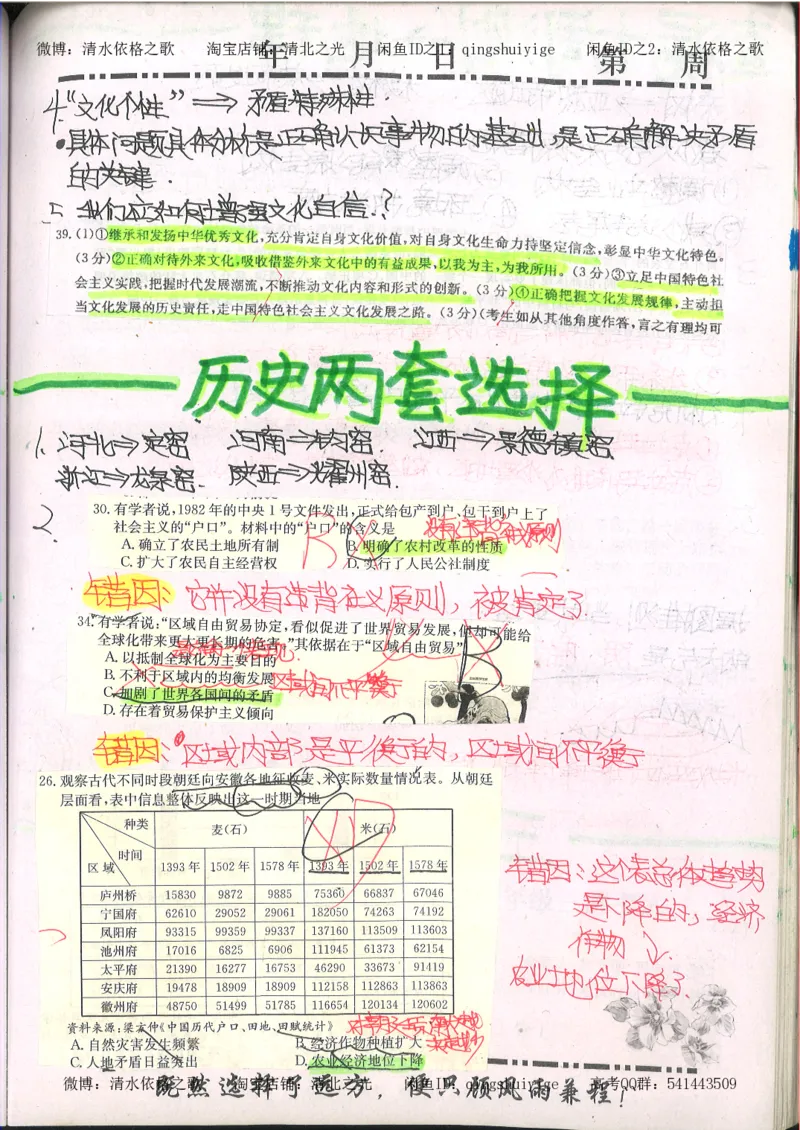 微博：清水依格之歌 淘宝店铺：清北之光 闲鱼ID之1：qingshuiyige 闲鱼ID之2：清水依格之歌
年 月 日 第 周
4."文化个性" ⇒ 矛盾特殊性.
•具体问题具体分析是正确认识事物的基础，是正确解决矛盾
的关键.
5. 我们应如何增强文化自信？
39.(1)①继承和发扬中华优秀文化，充分肯定自身文化价值，对自身文化生命力持坚定信念，彰显中华文化特色。
(3分)②正确对待外来文化，吸收借鉴外来文化中的有益成果，以我为主，为我所用。(3分)③立足中国特色社
会主义实践，把握时代发展潮流，不断推动文化内容和形式的创新。(3分)④正确把握文化发展规律，主动担
当文化发展的历史责任，走中国特色社会主义文化发展之路。(3分)(考生如从其他角度作答，言之有理均可
历史两套选择
1. 河北⇒定窑 河南⇒钧窑. 江西⇒景德镇窑
浙江⇒龙泉窑. 陕西⇒耀州窑.
2.
30.有学者说，1982年的中央1号文件发出，正式给包产到户、包干到户上了
社会主义的“户口”。材料中的“户口”的含义是
A.确立了农民土地所有制 B.明确了农村改革的性质
C.扩大了农民自主经营权 D.实行了人民公社制度
B
错因：它并没有违背社义原则，被肯定了.
34.有学者说：“区域自由贸易协定，看似促进了世界贸易发展，但却可能给
全球化带来更大更长期的危害。”其依据在于“区域自由贸易”
A.以抵制全球化为主要目的
B.不利于区域内的均衡发展
区域间不平衡
C.加剧了世界各国间的矛盾
D.存在着贸易保护主义倾向
B
错因：区域内部是平衡的，区域间不平衡
26.观察古代不同时段朝廷向安徽各地征收麦、米实际数量情况表。从朝廷
层面看，表中信息整体反映出这一时期当地
种类 麦(石) 米(石)
时间
区域 1393年 1502年 1578年 1393年 1502年 1578年
庐州桥 15830 9872 9885 75360 66837 67046
宁国府 62610 29052 29061 182050 74263 74192
凤阳府 93315 99359 99337 137160 113509 113603
池州府 17016 6825 6906 111945 61373 62154
太平府 21390 16277 16753 46290 33673 91419
安庆府 19478 18909 18909 112158 112863 113863
徽州府 48750 51499 51785 116654 120134 120602
D
错因：这个表总体趋势
是下降的，经济
作物
农业土地位下降了.
资料来源：梁方仲《中国历代户口、田地、田赋统计》
A.自然灾害发生频繁 B.经济作物种植扩大
C.人地矛盾日益突出 D.农业经济地位下降
微博：清水依格之歌 淘宝店铺：清北之光 闲鱼ID：qingshuiyige 高考QQ群：541443509
既然选择了远方，便只顾风雨兼程！